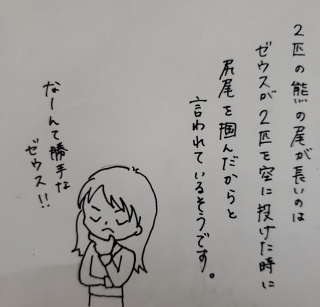 2匹の熊の尾が長いのは
ゼウスが2匹を空に投げた時に
尻尾を掴んだからと
言われているそうです。
なーんて勝手な
ゼウス!!